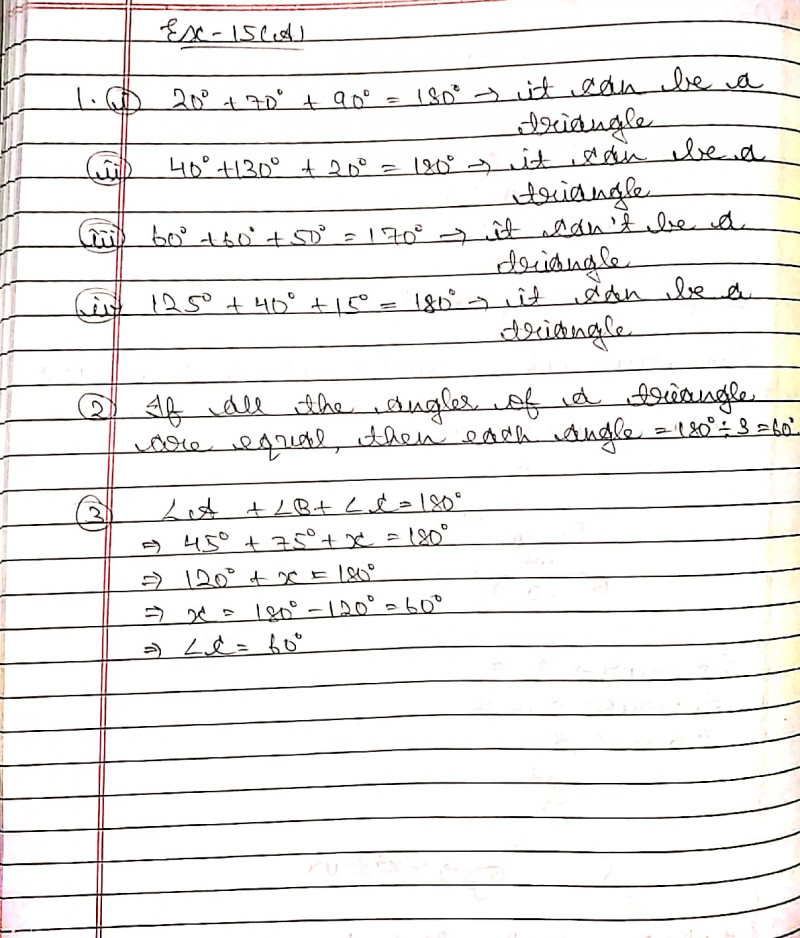 Ex-15(A)
1. (i) 20° + 70° + 90° = 180° → it can be a
triangle
(ii) 40° + 130° + 20° = 180° → it can be a
triangle
(iii) 60° + 60° + 50° = 170° → it can't be a
triangle
(iv) 125° + 40° + 15° = 180° → it can be a
triangle
(2) If all the angles of a triangle
are equal, then each angle = 180° ÷ 3 = 60°
(3) ∠A + ∠B + ∠C = 180°
⇒ 45° + 75° + x = 180°
⇒ 120° + x = 180°
⇒ x = 180° - 120° = 60°
⇒ ∠C = 60°